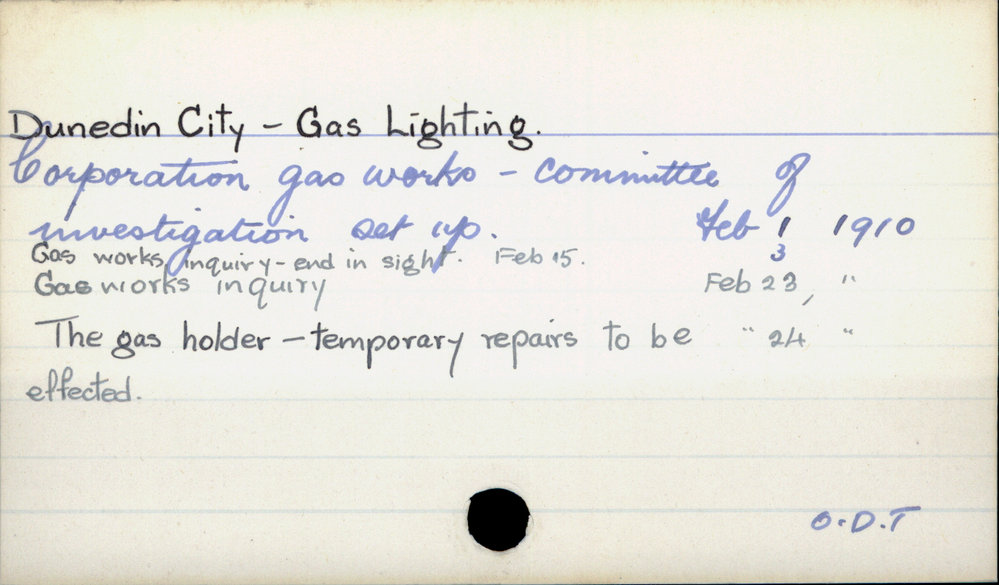 Dunedin City - Gas Lighting.
Corporation gas works - committee of
investigation set up. Feb 1 1910
3
Gas works inquiry - end in sight. Feb 15.
Gas works inquiry Feb 23, "
The gas holder - temporary repairs to be " 24 "
effected.
O.D.T